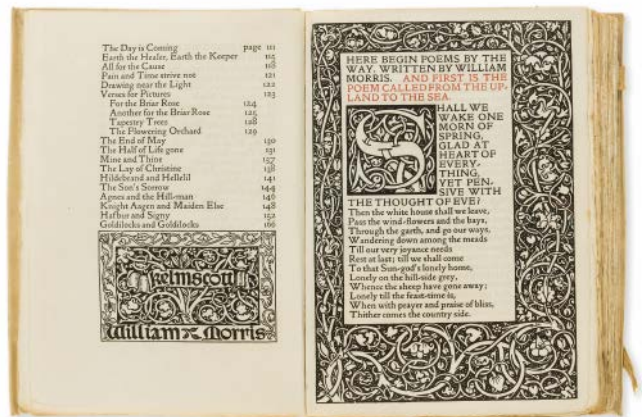 The Day is Coming page 111
Earth the Healer, Earth the Keeper 115
All for the Cause 118
Pain and Time strive not 121
Drawing near the Light 122
Verses for Pictures 123
For the Briar Rose 124
Another for the Briar Rose 125
Tapestry Trees 128
The Flowering Orchard 129
The End of May 130
The Half of Life gone 131
Mine and Thine 137
The Lay of Christine 138
Hildebrand and Hellelil 141
The Son's Sorrow 144
Agnes and the Hill-man 146
Knight Aagen and Maiden Else 148
Hafbur and Signy 152
Goldilocks and Goldilocks 166
Kelmscott
William Morris
HERE BEGIN POEMS BY THE
WAY. WRITTEN BY WILLIAM
MORRIS. AND FIRST IS THE
POEM CALLED FROM THE UP-
LAND TO THE SEA.
SHALL WE
WAKE ONE
MORN OF
SPRING,
GLAD AT
HEART OF
EVERY-
THING,
YET PEN-
SIVE WITH
THE THOUGHT OF EVE?
Then the white house shall we leave,
Pass the wind-flowers and the bays,
Through the garth, and go our ways,
Wandering down among the meads
Till our very joyance needs
Rest at last; till we shall come
To that Sun-god's lonely home,
Lonely on the hill-side grey,
Whence the sheep have gone away;
Lonely till the feast-time is,
When with prayer and praise of bliss,
Thither comes the country side.